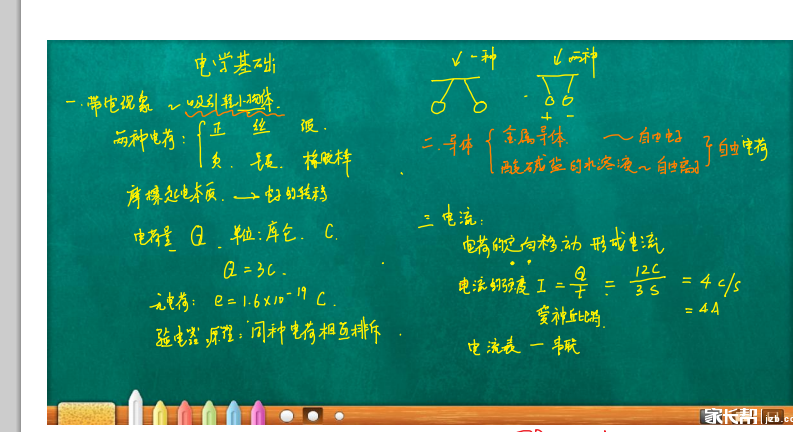 电学基础
一.带电现象 ~ 吸引轻小物体.
两种电荷:
正 丝 玻.
负. 毛皮. 橡胶棒
摩擦起电本质. → 电子的转移
电荷量 Q 单位:库仑. C.
Q=3C.
元电荷: e=1.6×10⁻¹⁹ C.
验电器.原理:同种电荷相互排斥.
↙一种
↙两种
+ -
二.导体
金属导体. ~ 自由电子
酸碱盐的水溶液~自由离子
自由电荷
三 电流:
电荷的定向移动 形成电流
电流的强度 I = Q/t = 12C/3S = 4 C/S
= 4A
电流表 — 串联
家长帮 jzb.c